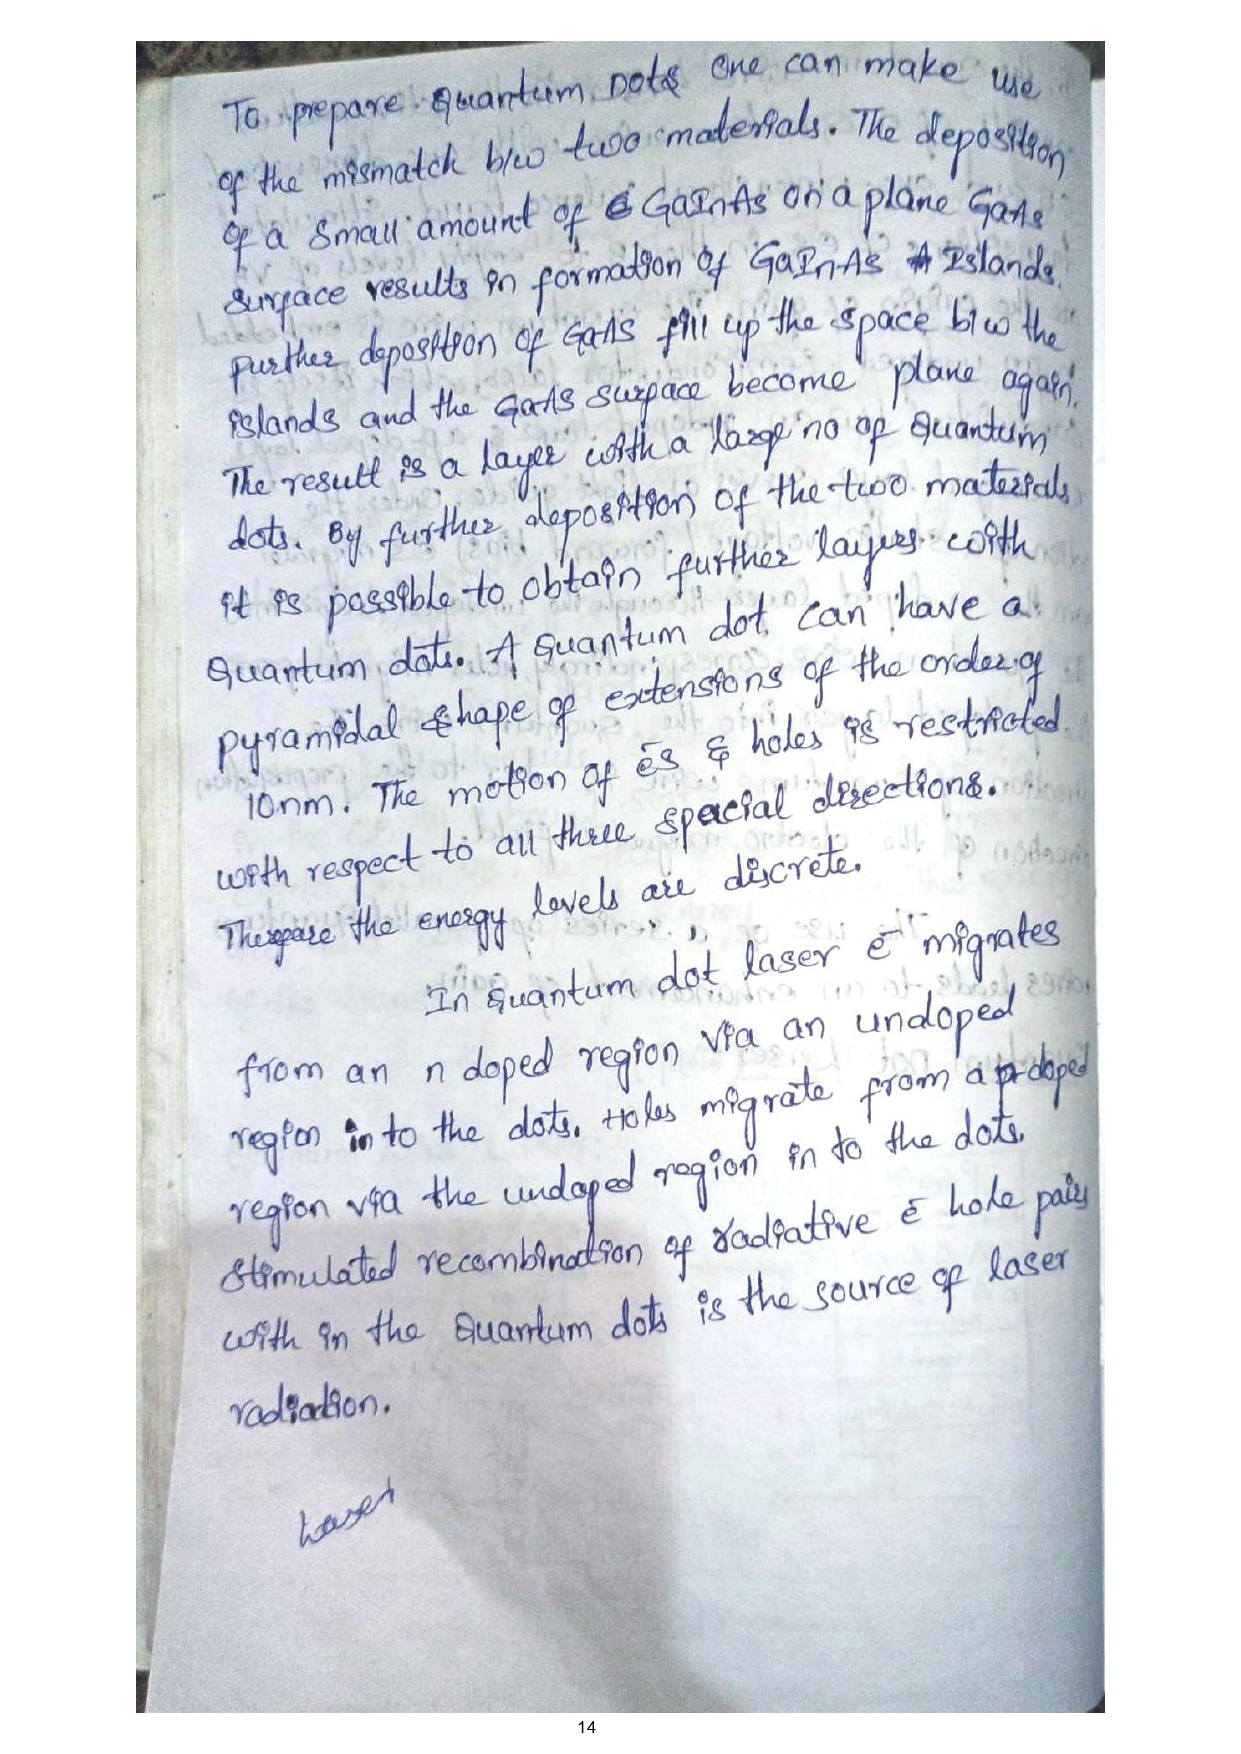 To prepare Quantum Dots one can make use
of the mismatch b/w two materials. The deposition
of a small amount of GaInAs on a plane GaAs
surface results in formation of GaInAs Islands.
further deposition of GaAs fill up the space b/w the
islands and the GaAs surface become plane again.
The result is a layer with a large no of Quantum
dots. By further deposition of the two materials
it is possible to obtain further layers with
Quantum dots. A Quantum dot can have a
pyramidal shape of extensions of the order of
10nm. The motion of ēs & holes is restricted
with respect to all three spacial directions.
Therefore the energy levels are discrete.
In Quantum dot laser e⁻ migrates
from an n doped region via an undoped
region in to the dots. Holes migrate from a p-doped
region via the undoped region in to the dots.
Stimulated recombination of radiative ē hole pairs
with in the Quantum dots is the source of laser
radiation.
Laser
14